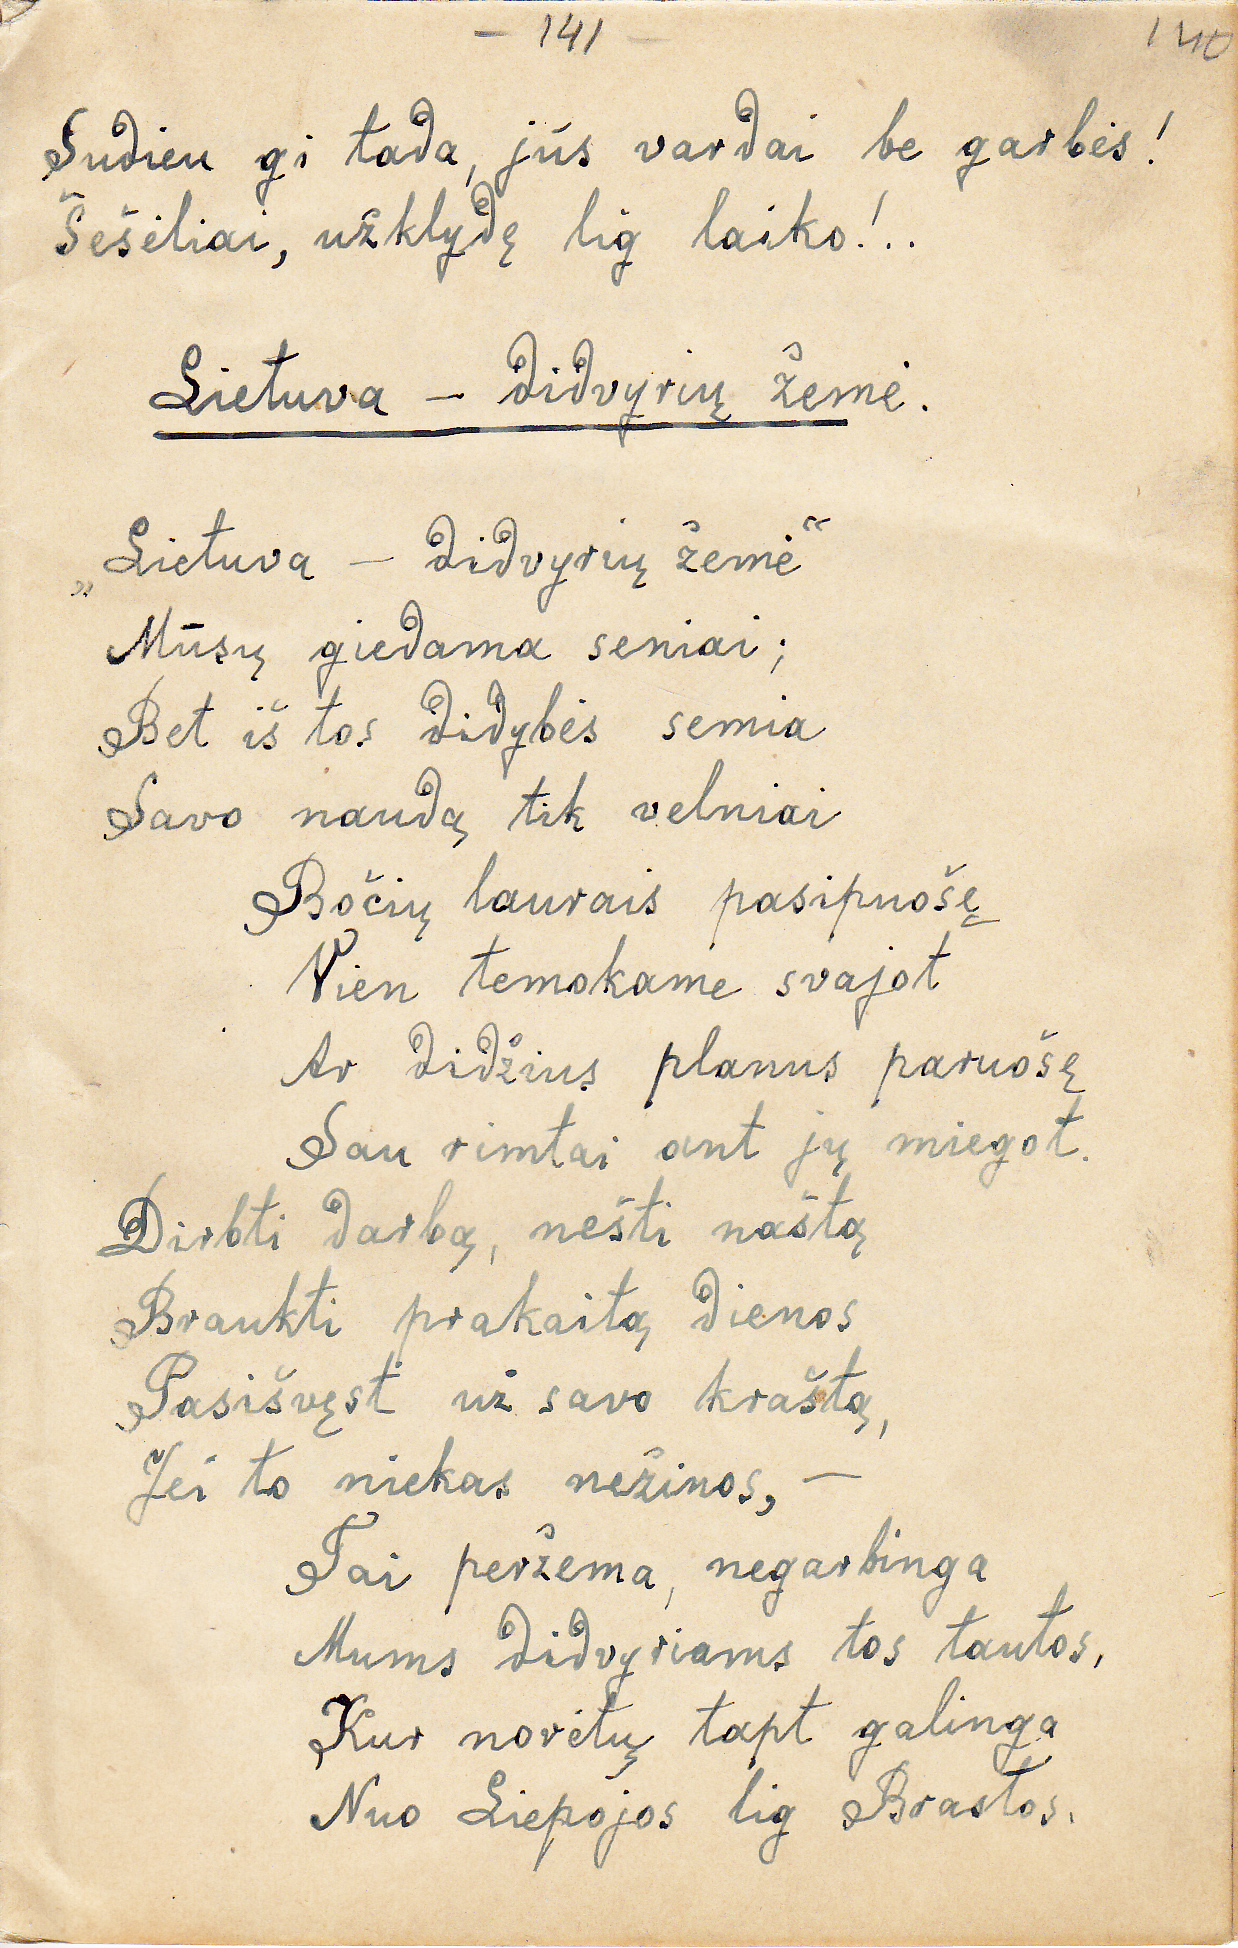 – 141 –
140
Sudieu gi tada, jūs vardai be garbės!
Šešėliai, užklydę lig laiko!..
Lietuva – didvyrių žemė.
„Lietuva – didvyrių žemė“
Mūsų giedama seniai;
Bet iš tos didybės semia
Savo naudą tik velniai
Bočių laurais pasipuošę
Vien temokame svajot
Ar didžius planus paruošę
Sau rimtai ant jų miegot.
Dirbti darbą, nešti naštą
Braukti prakaitą dienos
Pasišvęst už savo kraštą,
Jei to niekas nežinos, –
Tai peržema, negarbinga
Mums didvyriams tos tautos,
Kur norėtų tapt galinga
Nuo Liepojos lig Brastos.